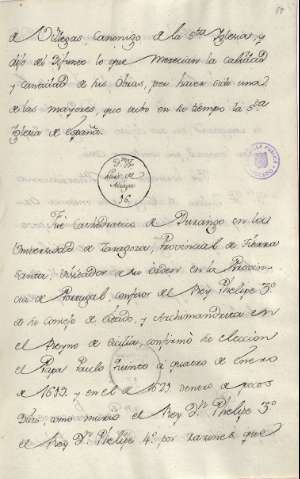 de Villegas, Canonigo de la Sta Iglesia, y
dijo de Difunto lo que merecian la calidad
y cantidad de sus Obras, por haver sido una
de las mayores, que tubo en su tiempo la Sta
Iglesia de España.
Fue Cathedratico de Durango en la
Universidad de Zaragoza, Provincial de tierra
santa, Visitador de su orden en la Provin-
cia de Portugal, confesor del Rey Phelipe 3º
de su Consejo de Estado, y Archimandrita en
el Reyno de Sicilia, confirmó su eleccion
el Papa Paulo Quinto a quatro de Enero
de y en el de 1621 dentro de pocos
Dias como murio el Rey Dn Phelipe 3º
el Rey Dn Phelipe 4º, por razones que